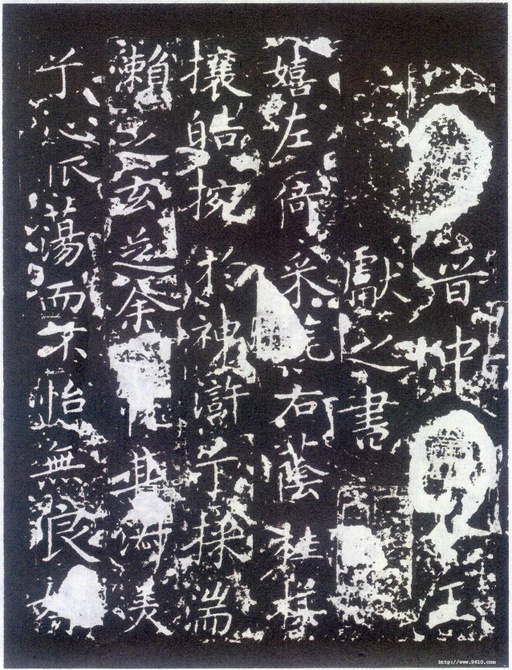 晉中王
獻之書
嬉左倚采旄右蔭桂旗
攘皓捥於神滸兮採湍
瀨之玄芝余其淑美
兮心振蕩而不怡無良媒
http://www.9610.com